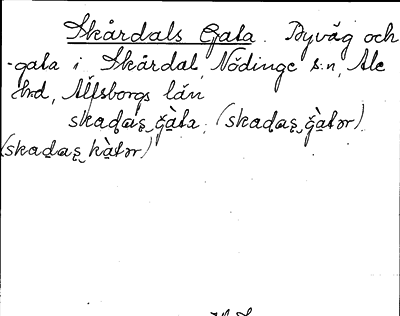 Skårdals Gata. Byväg och
-gata i Skårdal, Nödinge s:n, Ale
hrd, Älfsborgs län
skaḍas̱ ğàta, (skaḍas̱ ğàtər)
(skaḍas̱ kàtər)